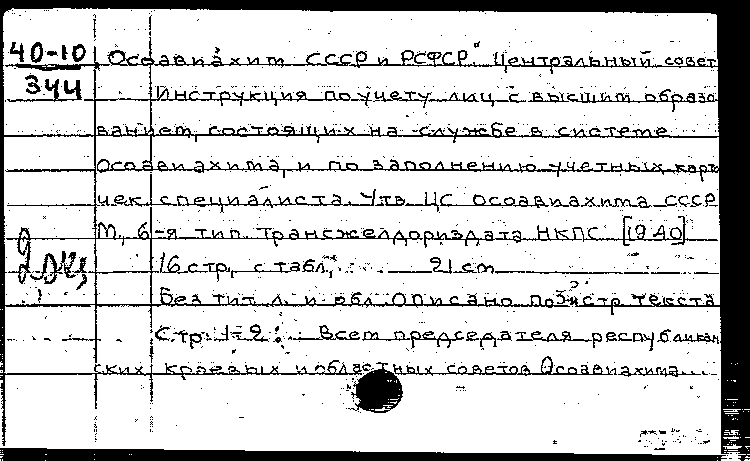 40-10
344
„Осоавиахим СССР и РСФСР." Центральный совет
Инструкция по учету лиц с высшим образо
ванием, состоящих на службе в системе
Осоавиахима, и по заполнению учетных карто
чек специалиста. Утв. ЦС Осоавиахима СССР
М., 6-я тип. Трансжелдориздата НКПС [1940]
16 стр., с табл., 21 см
2 экз
Без тит. л. и обл. Описано по 3й стр текста
Стр. 1-2: Всем председателя республикан
ских краевых и областных советов Осоавиахима...